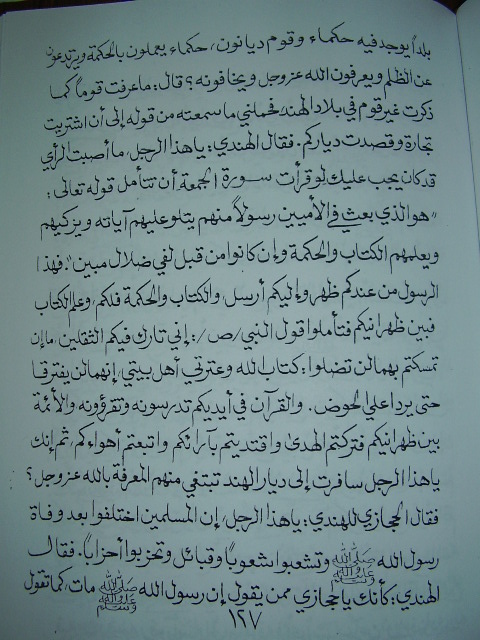 بلداً يوجد فيه حكماء وقوم ديانون، حكماء يعملون بالحكمة ويرتدعون
عن الظلم ويعرفون الله عز وجل ويخافونه؟ قال: ما عرفت قوماً كما
ذكرت غير قوم في بلاد الهند، فحملني ما سمعته من قوله إلى أن اشتريت
تجارة وقصدت دياركم. فقال الهندي: يا هذا الرجل، ما أصبت الرأي
قد كان يجب عليك لو قرأت سورة الجمعة أن تتأمل قوله تعالى:
"هو الذي بعث في الأميين رسولاً منهم يتلو عليهم آياته ويزكيهم
ويعلمهم الكتاب والحكمة وإن كانوا من قبل لفي ضلال مبين". فهذا
الرسول من عندكم ظهر وإليكم أرسل، والكتاب والحكمة فلكم، وعلم الكتاب
فبين ظهرانيكم فتأملوا قول النبي /ص/: إني تارك فيكم الثقلين، ما إن
تمسكتم بهما لن تضلوا: كتاب الله وعترتي أهل بيتي، إنهما لن يفترقا
حتى يردا علي الحوض. والقرآن في أيديكم تدرسونه وتقرؤونه والأئمة
بين ظهرانيكم فتركتم الهدى واقتديتم بآرائكم واتبعتم أهواءكم، ثم إنك
يا هذا الرجل سافرت إلى ديار الهند تبتغي منهم المعرفة بالله عز وجل؟
فقال الحجازي للهندي: يا هذا الرجل، إن المسلمين اختلفوا بعد وفاة
رسول الله ﷺ وتشعبوا شعوباً وقبائل وتحزبوا أحزاباً. فقال
الهندي: كأنك يا حجازي ممن يقول إن رسول الله ﷺ مات، كما تقول
١٢٧